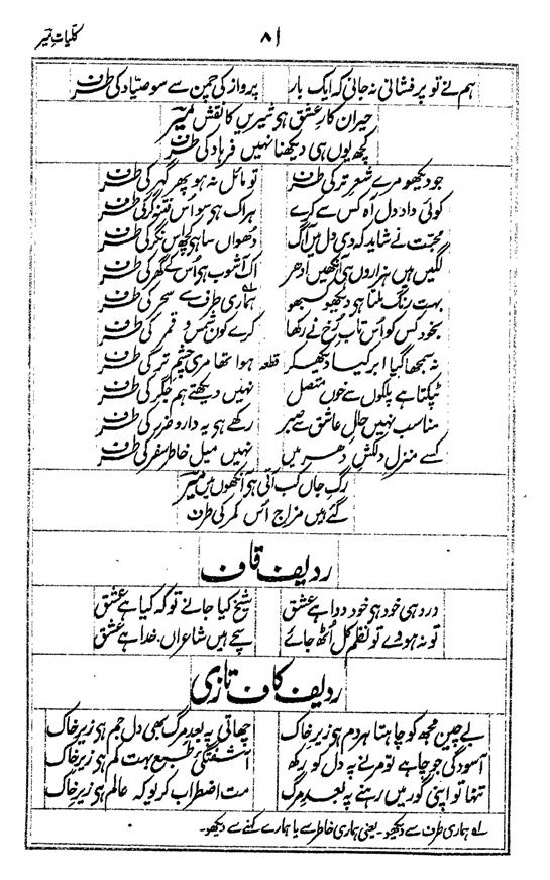 کلیاتِ میر
۸۱
ہم نے تو پرفشانی نہ جانی کہ ایک بار پرواز کی چمن سے سو صیّاد کی طرف
حیران کارِ عشق ہی شیریں کا نقش میرؔ
کچھ یوں ہی دیکھتا نہیں فرہاد کی طرف
جو دیکھو مرے شعرِ تر کی طرف تو مائل نہ ہو پھر گہر کی طرف
کوئی دادِ دل آہ کس سے کرے ہراک ہی سو اُس فتنہ گر کی طرف
محبّت نے شاید کہ دی دل میں آگ دھواں سا ہی کچھ اس نگر کی طرف
لگیں ہیں ہزاروں ہی آنکھیں ادھر اک آشوب ہی اُس کے گھر کی طرف
بہت رنگ ملتا ہی دیکھو کبھو ہماری طرف سے سحر کی طرف
بخود کس کو اُس تاب رُخ نے رکھا کرے کون شمس و قمر کی طرف
نہ سمجھا گیا ابر کیا دیکھ کر قطعہ ہوا تھا مری چشمِ تر کی طرف
ٹپکتا ہے پلکوں سے خوں متصل نہیں دیکھتے ہم جگر کی طرف
مناسب نہیں حالِ عاشق سے صبر رکھے ہی یہ دارو ضرر کی طرف
کسے منزلِ دلکشِ دہر میں نہیں میل خاطر سفر کی طرف
رگِ جاں کب آتی ہی آنکھوں میں میرؔ
گئے ہیں مزاج اُس کمر کی طرف
ردیف قاف
درد ہی خود ہی خود دوا ہے عشق شیخ کیا جانے تو کہ کیا ہے عشق
تو نہ ہووے تو نظمِ کل اُٹھ جائے سچے ہیں شاعراں۔ خدا ہے عشق
ردیف کاف تازی
بے چین مجھ کو چاہتا ہر دم ہی زیرِ خاک چھاتی پہ بعدِ مرگ بھی دل جم ہی زیرِ خاک
آسودگی جو چاہے تو مرنے پہ دل کو رکھ آشفتگیِ طبع بہت کم ہی زیرِ خاک
تنہا تو اپنی گور میں رہنے پہ بعدِ مرگ مت اضطراب کریو کہ عالم ہی زیرِ خاک
لہ ہماری طرف سے دیکھو۔ یعنی ہماری خاطر سے یا ہمارے کہنے سے دیکھو۔